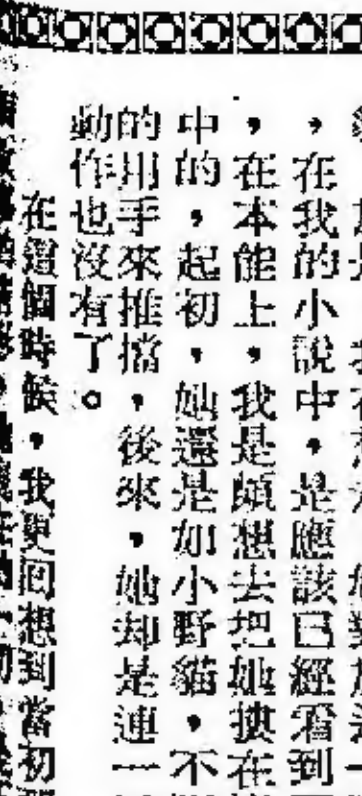 ，在我的小說中，是應該已經看到
，在本能上，我是頗想去把她摟在
中的，起初，她還是如小野貓，不
的用手來推擋，後來，她却是連一
動作也沒有了。
在這個時候，我更回想到當初